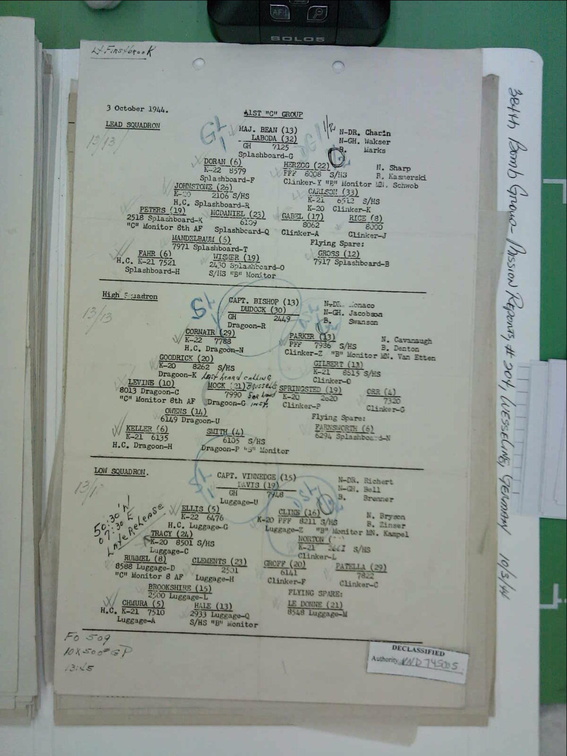 Lt. Finsbrook
3 October 1944.
41ST "C" GROUP
LEAD SQUADRON
MAJ. BEAN (13)
LABODA (32)
GH 7125
Splashboard-G
N-DR. Charin
N-GH. Wakser
B. Marks
DORAN (6)
K-22 8579
Splashboard-F
HERZOG (22)
PFF 6008 S/HS
Clinker-Y "B" Monitor MN. Schwob
N. Sharp
B. Kaznerski
JOHNSTONE (26)
K-20 2106 S/HS
H.C. Splashboard-R
CARLSON (33)
K-21 6512 S/HS
K-20 Clinker-K
PETERS (19)
2518 Splashboard-K
"C" Monitor 8th AF
MCDANIEL (23)
6109
Splashboard-Q
GABEL (17)
8062
Clinker-A
RICE (8)
8200
Clinker-J
MANDELBAUM (5)
7971 Splashboard-T
Flying Spare:
FAHR (6)
H.C. K-21 7521
Splashboard-H
WISMER (19)
2430 Splashboard-O
S/HS "B" Monitor
GROSS (12)
7917 Splashboard-B
High Squadron
13/13
CAPT. BISHOP (13)
DUDOCK (30)
GH 2449
Dragoon-R
N-DR. Monaco
N-GH. Jacobson
B. Swanson
CORNAIR (29)
K-22 7788
H.C. Dragoon-N
PARKER (13)
PFF 7986 S/HS
Clinker-Z "B" Monitor MN. Van Etten
N. Cavanaugh
B. Denton
GOODRICK (20)
K-20 8262 S/HS
Dragoon-K
GILBERT (13)
K-21 8515 S/HS
Clinker-O
LEVINE (10)
8013 Dragoon-C
"C" Monitor 8th AF
MOCK (21)
7990
Dragoon-G
SPRINGSTED (19)
K-20 2620
Clinker-P
ORR (4)
7320
Clinker-G
OWENS (14)
6149 Dragoon-U
Flying Spare:
KELLER (6)
K-21 6135
H.C. Dragoon-H
SMITH (4)
6105 S/HS
Dragoon-P "B" Monitor
FARNSWORTH (6)
6294 Splashboard-N
LOW SQUADRON.
CAPT. VINNEDGE (15)
DAVIS (19)
GH 7948
Luggage-U
N-DR. Richert
N-GH. Bell
B. Brenner
50:30 N
07:30 E
Late Release
ELLIS (5)
K-22 6476
H.C. Luggage-G
CLINE (16)
K-20 PFF 8211 S/HS
Luggage-Z "B" Monitor MN. Kampel
N. Bryson
B. Zinser
TRACY (24)
K-20 8501 S/HS
Luggage-C
HORTON
K-21 S/HS
Clinker-L
RUMMEL (8)
8588 Luggage-D
"C" Monitor 8 AF
CLEMENTS (23)
2501
Luggage-H
GROFF (20)
6141
Clinker-F
PATELLA (29)
7822
Clinker-C
BROOKSHIRE (15)
2500 Luggage-L
FLYING SPARE:
CHMURA (5)
H.C. K-21 7510
Luggage-A
HALE (13)
2933 Luggage-Q
S/HS "B" Monitor
LE DONNE (21)
8548 Luggage-M
FO 509
10X500# GP
DECLASSIFIED
Authority NND 745005
384th Bomb Group - Mission Reports, # 204 (Wesseling, Germany) 10/3/44